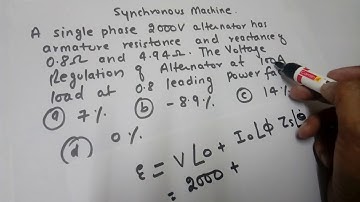 Synchronous Machine.
A single phase 2000V alternator has
armature resistance and reactance of
0.8Ω and 4.94Ω. The Voltage
Regulation of Alternator at 100A
load at 0.8 leading power
(a) 7% (b) -8.9% (c) 14%
(d) 0%
E = V∠0 + I₀∠ϕ Zs∠θ
= 2000 +